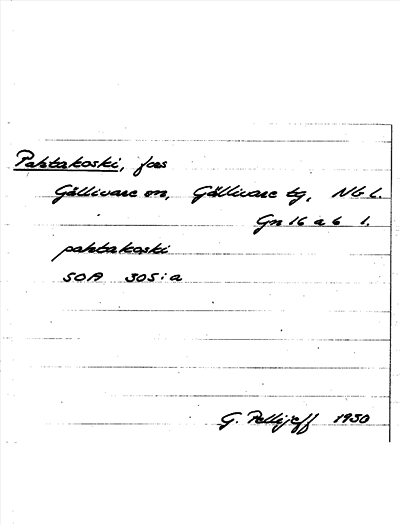 Pahtakoski, fors
Gällivare sn, Gällivare tg, Nbg l.
Gn 16 a 6 1.
pahtakoski
SOA 305:a
G. Pellijeff 1950